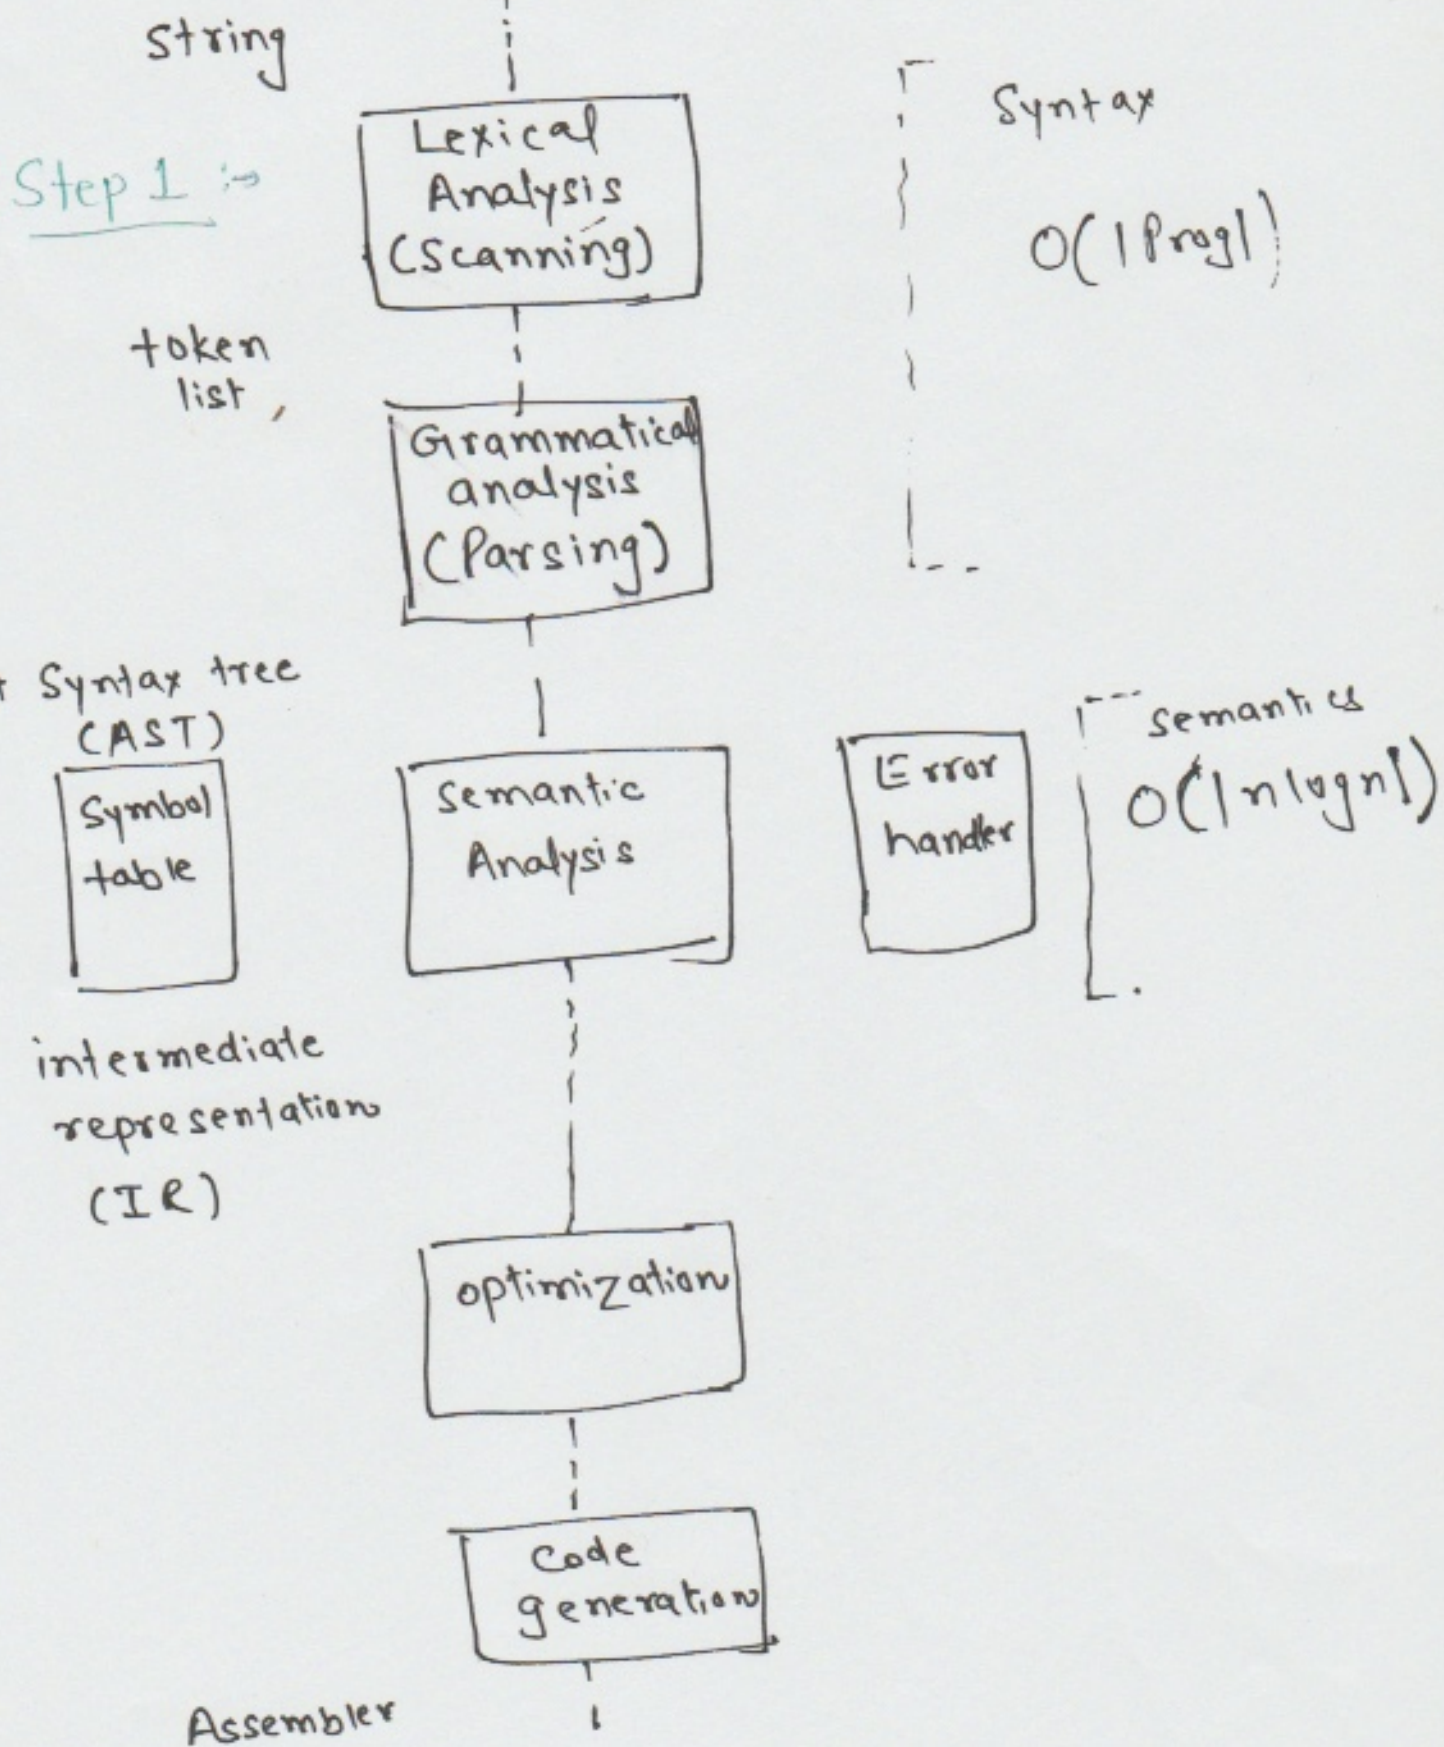 string
Lexical
Analysis
(Scanning)
Step 1 :→
Syntax
O(|Prog|)
token
list,
Grammatical
analysis
(Parsing)
Syntax tree
(AST)
Symbol
table
Semantic
Analysis
Error
handler
semantics
O(|nlogn|)
intermediate
representation
(IR)
optimization
Code
generation
Assembler